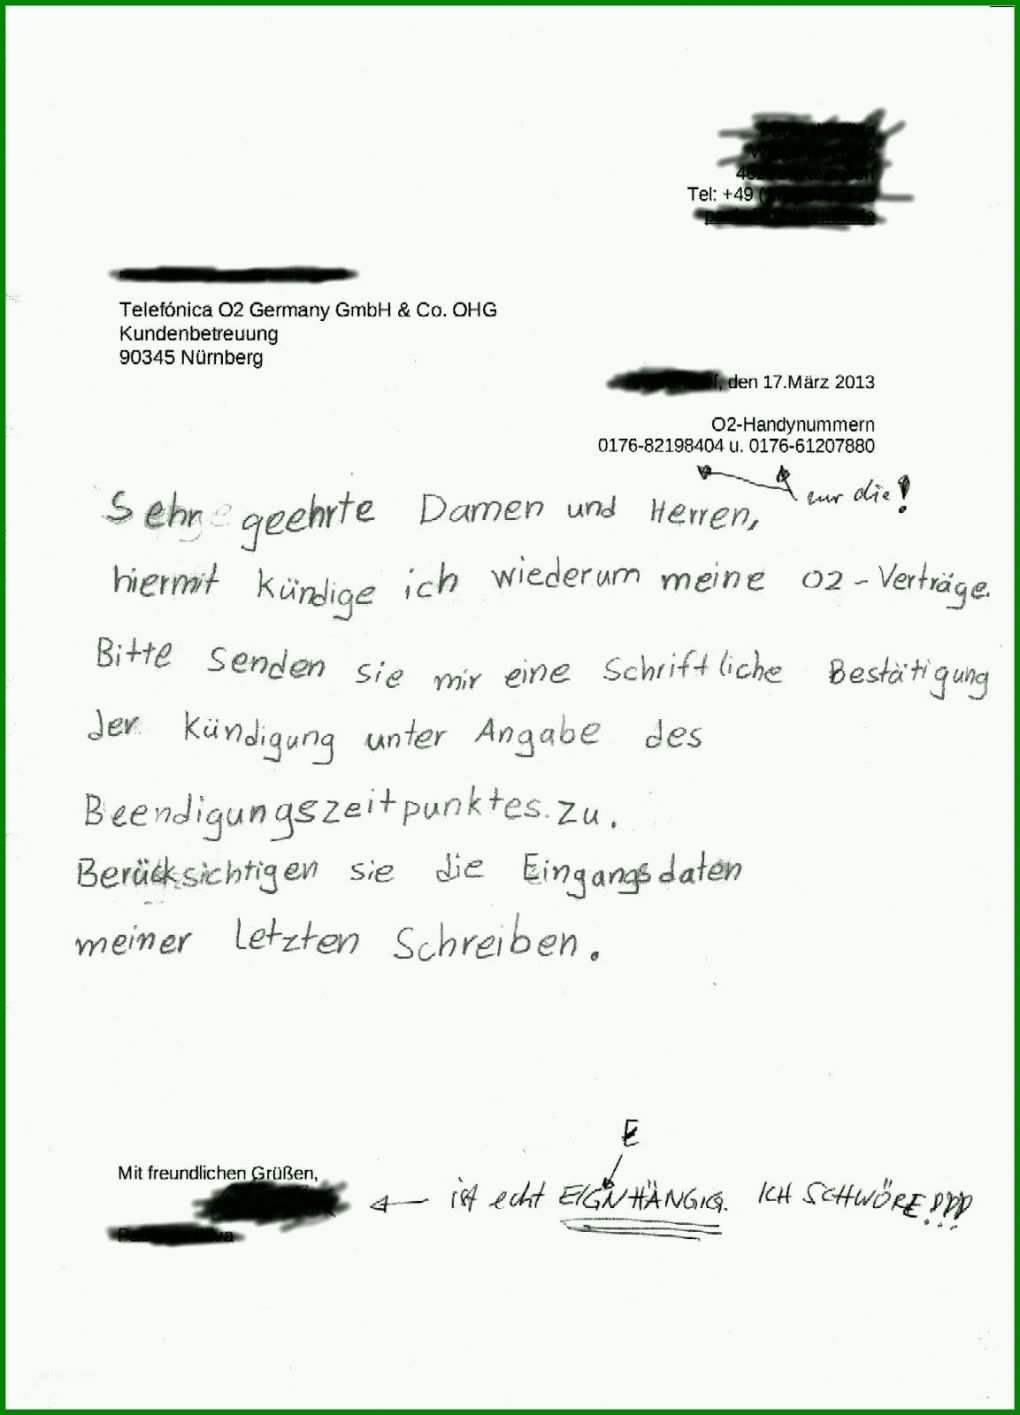 Tel: +49
Telefónica O2 Germany GmbH & Co. OHG
Kundenbetreuung
90345 Nürnberg
, den 17.März 2013
O2-Handynummern
0176-82198404 u. 0176-61207880
nur die!
Sehr geehrte Damen und Herren,
hiermit kündige ich wiederum meine O2-Verträge.
Bitte senden sie mir eine Schriftliche Bestätigung
der Kündigung unter Angabe des
Beendigungszeitpunktes.zu.
Berücksichtigen sie die Eingangsdaten
meiner letzten Schreiben.
E
Mit freundlichen Grüßen,
ist echt EIGNHÄNGIG. ICH SCHWÖRE!!!